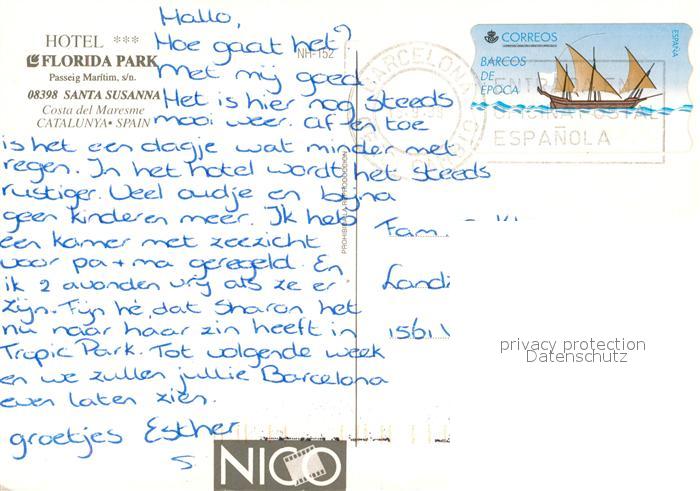 Hallo,
Hoe gaat het?
Met mij goed
Het is hier nog steeds
mooi weer. af en toe
is het een dagje wat minder met
regen. In het hotel wordt het steeds
rustiger. Veel oudje en bijna
geen kinderen meer. Ik heb
een kamer met zeezicht
voor pa + ma geregeld. En
ik 2 avonden vrij als ze er
zijn. Fijn hé, dat Sharon het
nu naar haar zin heeft in
Tropic Park. Tot volgende week
en we zullen jullie Barcelona
even laten zien.
groetjes Esther
HOTEL ***
FLORIDA PARK
Passeig Marítim, s/n.
08398 SANTA SUSANNA
Costa del Maresme
CATALUNYA • SPAIN
NH-152
PROHIBIDA LA REPRODUCCION
CORREOS
BARCOS
DE
EPOCA
ESPAÑA
BARCELONA
ENTRADA EN
OFICINA POSTAL
ESPAÑOLA
Fam.
Landi
1561
privacy protection
Datenschutz
NICO